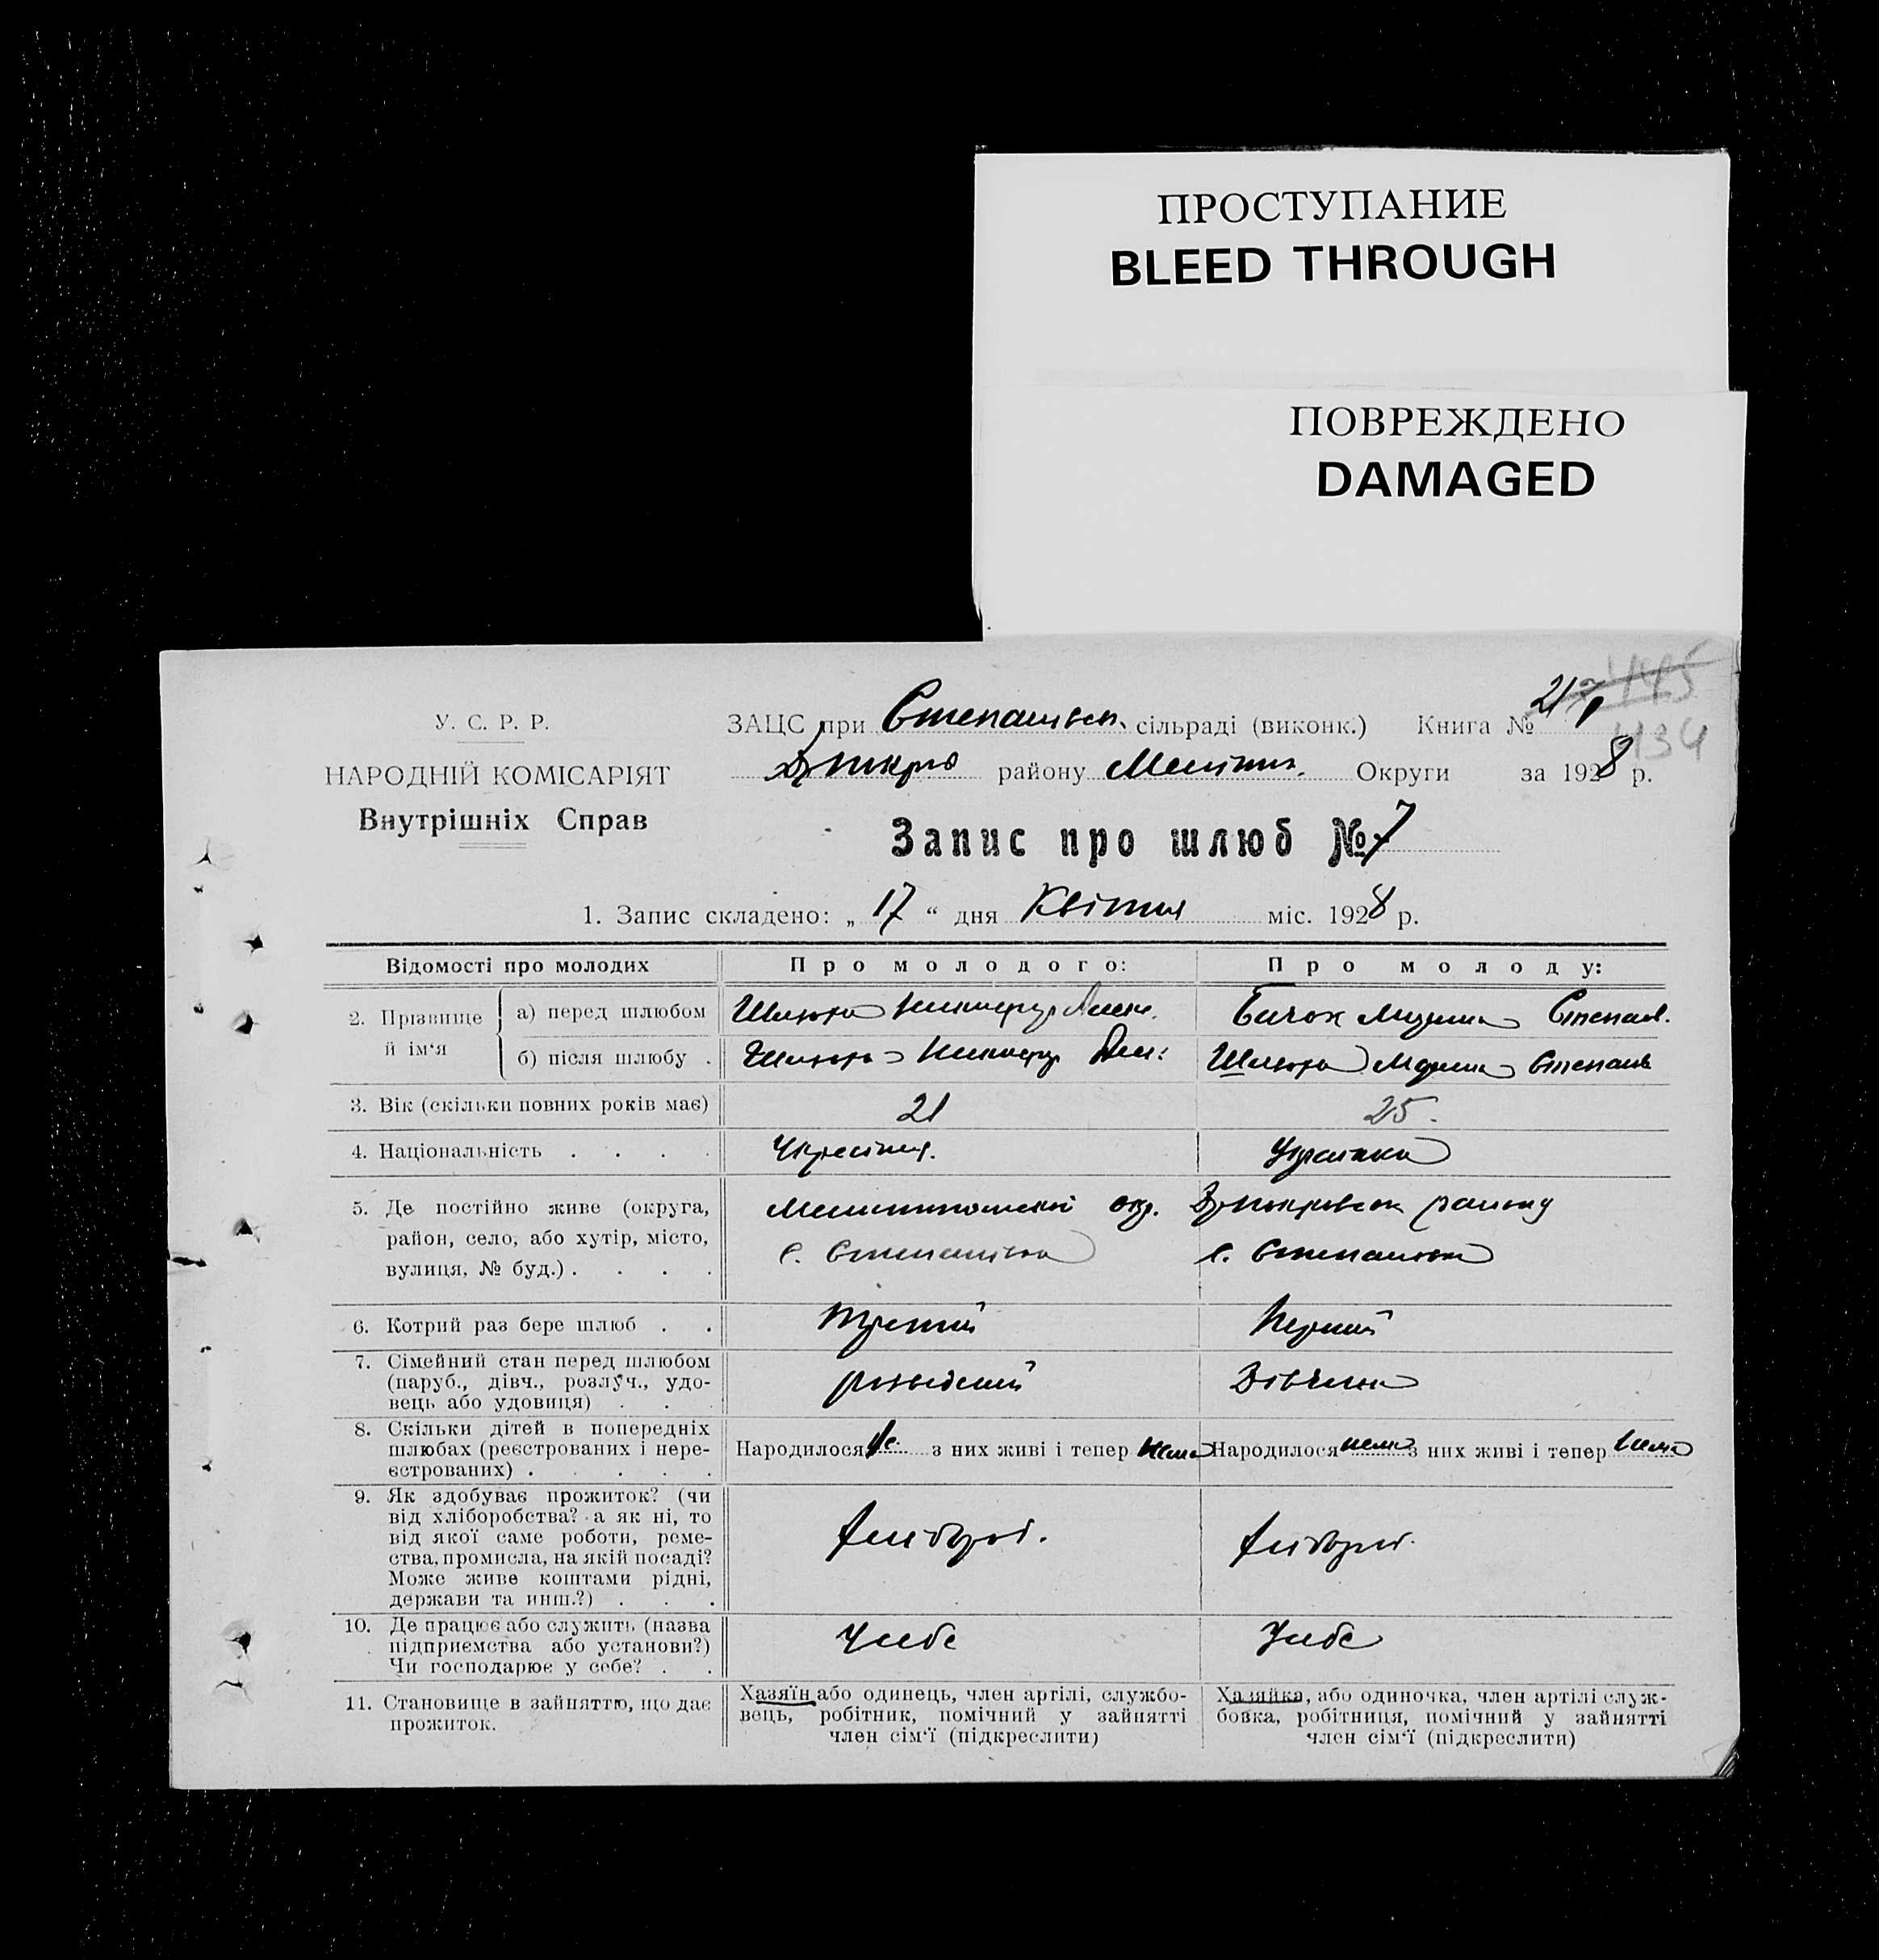 ПРОСТУПАНИЕ
BLEED THROUGH
ПОВРЕЖДЕНО
DAMAGED
У. С. Р. Р.
НАРОДНІЙ КОМІСАРІЯТ
Внутрішніх Справ
ЗАЦС при сільраді (виконк.) Книга №
134
району Меліт. Округи за 1928 р.
Запис про шлюб № 7
1. Запис складено: „ 17 “ дня Квітня міс. 1928 р.
Відомості про молодих
Про молодого:
Про молоду:
2. Прізвище й ім‘я
а) перед шлюбом
Бичок Степан.
б) після шлюбу .
Степан
3. Вік (скільки повних років має)
21
25.
4. Національність . . . .
Українка
5. Де постійно живе (округа,
район, село, або хутір, місто,
вулиця, № буд.) . . . .
окр.
району
с. Степанівка
с. Степанівка
6. Котрий раз бере шлюб . .
третій
Перший
7. Сімейний стан перед шлюбом
(паруб., дівч., розлуч., удо-
вець або удовиця) . . .
Дівчина
8. Скільки дітей в попередніх
шлюбах (реєстрованих і нере-
єстрованих) . . . . .
Народилося з них живі і тепер нема
Народилося нема з них живі і тепер нема
9. Як здобуває прожиток? (чи
від хліборобства? а як ні, то
від якої саме роботи, реме-
ства, промисла, на якій посаді?
Може живе коштами рідні,
держави та инш.?) . . .
10. Де працює або служить (назва
підприємства або установи?)
Чи господарює у себе? . .
У себе
У себе
11. Становище в зайняттю, що дає
прожиток.
Хазяїн або одинець, член артілі, службо-
вець, робітник, помічний у зайнятті
член сім‘ї (підкреслити)
Хазяйка, або одиночка, член артілі служ-
бовка, робітниця, помічний у зайнятті
член сім‘ї (підкреслити)